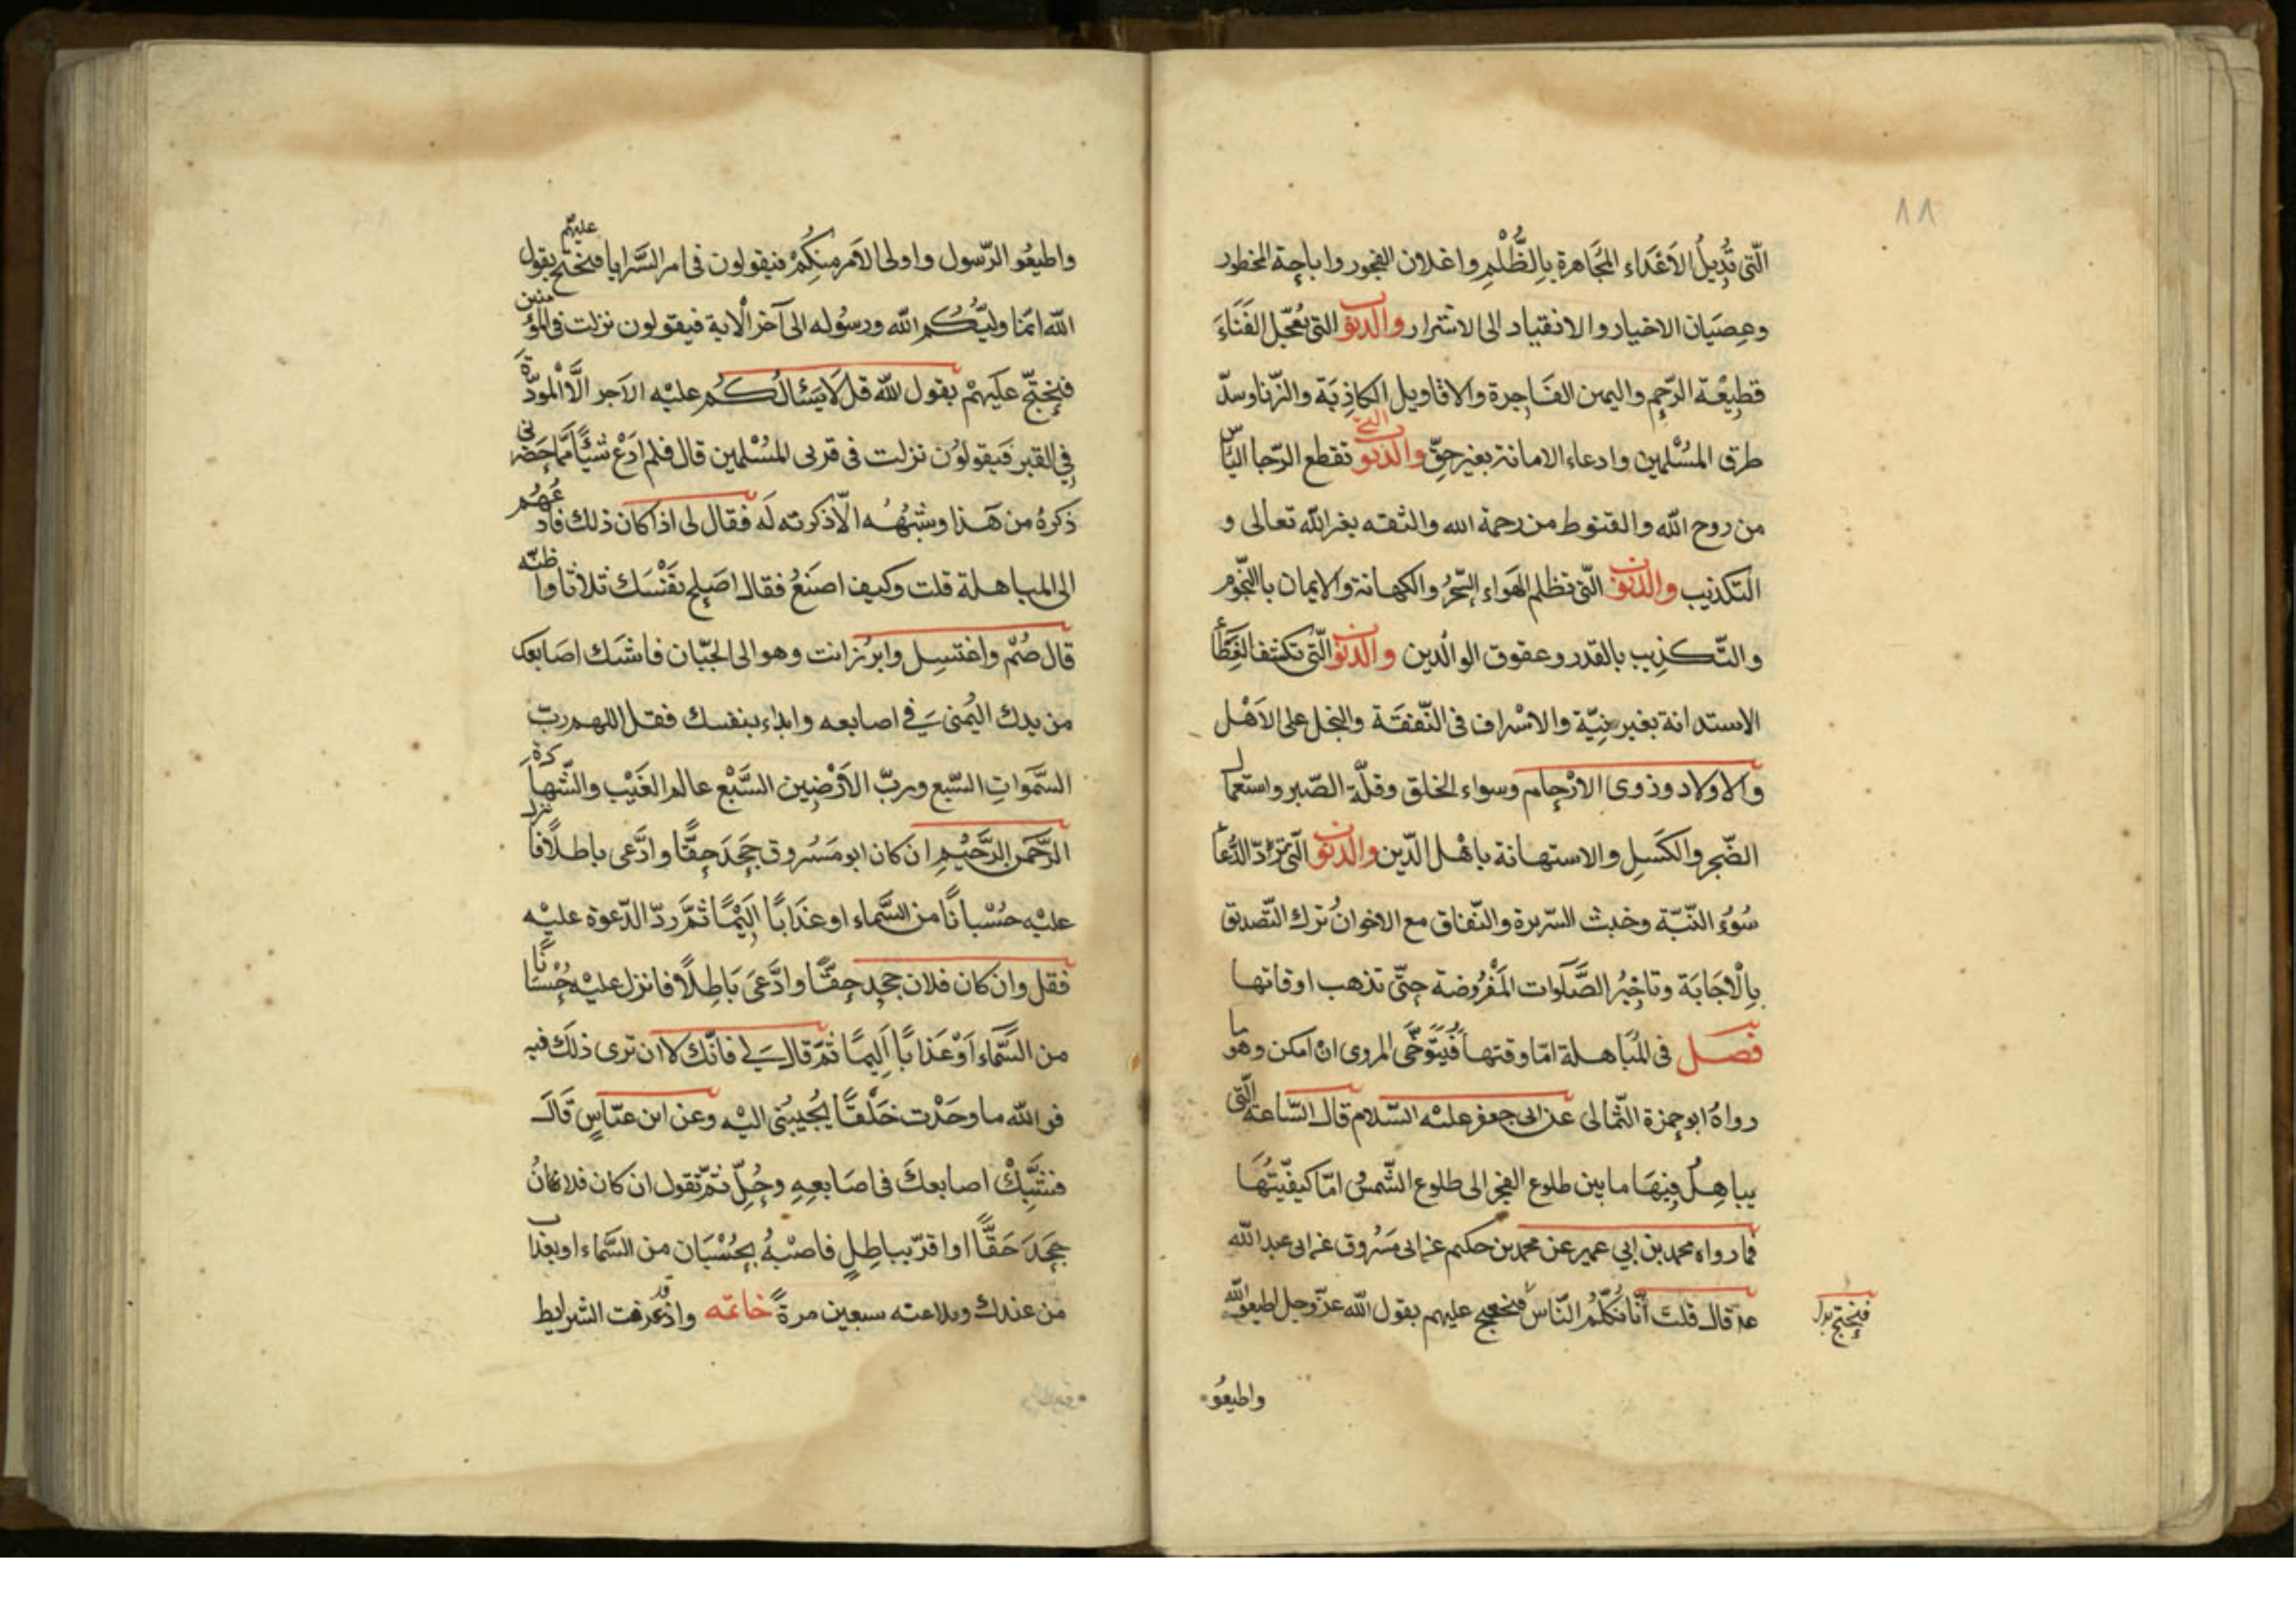 ٨٨
الّتى تُدِيلُ الاَعْدَاء المُجَاهرة بِالِظُّلْمِ واعلان الفجور واباحة المحظور
وعِصيَان الاخيار والانقياد الى الاشرار والذنوب التى تُعَجّل الفَنَاءَ
قطِيْعَة الرّحِم واليمين الفَاجِرة والاقاويل الكاذِبَة والزّنا وسدّ
طرق المسْلمين وادعاء الامانة بغير حقّ والذنوب التى تقطع الرّجا اليَاس
من روح الله والقنوط من رحمة الله والثقه بغير الله تعالى و
التكذيب والذنوب الّتى تظلم الهَواء السّحْرُ والكهانة والايمان باالنّجوم
والتّكذِيب بالقدر وعقوق الوالدين والذنوب الّتى تكشف الغَطَأ
الاستدانة بغير نِيّة والاسْراف فى النّفقَة والبخل على الاَهْل
والاولاد وذوى الارْحام وسواء الخلق وقلّة الصّبر واستعمال
الضّجر والكَسَلِ والاستهانة باهْل الدّين والذنوب الّتى تردّ الدُّعَا
سُوُءُ النّيّة وخبث السّريرة والنّفاق مع الاخوانُ ترك التّصديق
بِالْاجَابَة وتاخِيرُ الصَّلَوات المَفْرُوضة حتّى تذهب اوقاتها
فصل فى المُبَاهلة امّا وقتها فُيَتَوَخَّى المروى ان امكن وهو ما
رواهُ ابو حمزة الثّمالى عن ابى جعفر عليْه السّلام قال السّاعة الّتى
يباهِلُ فِيهَا ما بين طلوع الفجر الى طلوع الشّمس امّا كيفيّتُهَا
فما رواه محمد بن ابي عمير عن محمد بن حكيم عن ابى مَسْروق عن ابى عبد الله
عد قال قلتَ أنّا نُكلّمُ النّاسَ فنحجج عليهم بقول الله عزّ وجل اطيعو الله
فنحتج بدل
واطيعُو
واطيعُو الرّسول واولى الاَمر منكُمْ فيقولون فى امر السَّرايا فنحتج عليهم بقول
الله انمّا وليّكُم الله ورسُوله الى آخر الْاية فيقولون نزلت فى المؤمنين
فنحتجّ علَيهمْ بقول لله قل لَا يَسْئالُكُم عليْه الاَجر الَّا المودّةَ
فِي القبر فَيقولوُن نزلت فى قربى المسْلمين قال فلم ادَعْ شيْأً ممّا حَضرنى
ذكرهُ من هَذا وشبْهُه الّا ذكرته لَه فقال لى اذا كان ذلك فادعُهُم
الى المباهلة قلت وكيف اصنَعُ فقال اصَلِح نَفْسَك ثلاثا واظنّه
قال صُمّ واغتسِل وابرُز انت وهو الى الجبّان فاشبك اصَابعك
من يدك اليُمنى فِي اصابعه وابداء بنفسك فقل اللهم ربّ
السَّموَاتِ السّبع وربّ الاَرْضِين السَّبْع عالم الغَيْب والشّهاَدة
الرَّحمن الرَّحيْمِ ان كان ابو مَسْروق جَحَدَ حقًّا وادَّعى باطلاً فانزل
عليْه حسْبانًا من السَّماء او عَذَابًا اَلِيْمًا ثمَّ ردّ الدّعوة عليْه
فقل وان كان فلان جحد حقًّا وادَّعَى بَاطِلاً فانزل عليْه حُسْبَانًا
من السَّمَاء اَوْ عَذَابًا اَلِيمًا ثمّ قال لِي فانّك لا ان ترى ذلَك فيه
فو الله ما وجَدْت خَلْقًا يُجُيبُنى اليْه وعن ابن عبّاسٍ قَالَ
فتشَبِّكْ اصابعكَ فى اصَابعِهِ وحُلّ ثمّ تقول ان كان فلانٌ
جحَدَ حَقًّا او اقرّ بباطِلٍ فاصْبهُ بحُسْبَان من السَّماء او بعذاب
من عندك وبلاعنه سبعين مرةً خاتمه واذ قد عرفت الشرايط